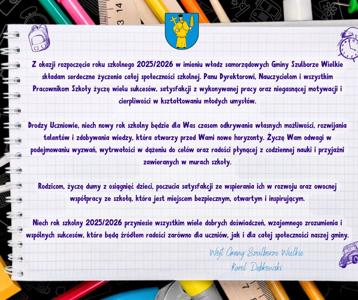 Z okazji rozpoczęcia roku szkolnego 2025/2026 w imieniu władz samorządowych Gminy Szulborze Wielkie
składam serdeczne życzenia całej społeczności szkolnej. Panu Dyrektorowi, Nauczycielom i wszystkim
Pracownikom Szkoły życzę wielu sukcesów, satysfakcji z wykonywanej pracy oraz niegasnącej motywacji i
cierpliwości w kształtowaniu młodych umysłów.
Drodzy Uczniowie, niech nowy rok szkolny będzie dla Was czasem odkrywania własnych możliwości, rozwijania
talentów i zdobywania wiedzy, która otworzy przed Wami nowe horyzonty. Życzę Wam odwagi w
podejmowaniu wyzwań, wytrwałości w dążeniu do celów oraz radości płynącej z codziennej nauki i przyjaźni
zawieranych w murach szkoły.
Rodzicom, życzę dumy z osiągnięć dzieci, poczucia satysfakcji ze wspierania ich w rozwoju oraz owocnej
współpracy ze szkołą, która jest miejscem bezpiecznym, otwartym i inspirującym.
Niech rok szkolny 2025/2026 przyniesie wszystkim wiele dobrych doświadczeń, wzajemnego zrozumienia i
wspólnych sukcesów, które będą źródłem radości zarówno dla uczniów, jak i dla całej społeczności naszej gminy.
Wójt Gminy Szulborze Wielkie
Karol Dębkowski